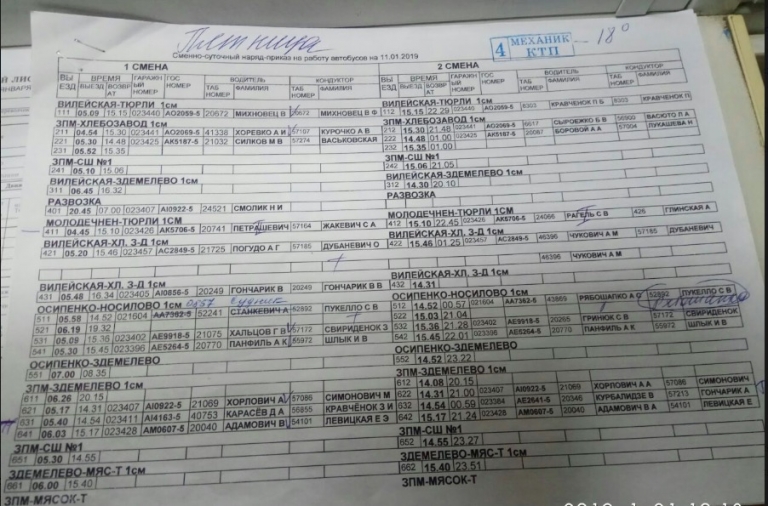 Пятница
4 МЕХАНИК КТП
18⁰
Сменно-суточный наряд-приказ на работу автобусов на 11.01.2019
1 СМЕНА
ВЫЕЗД ВРЕМЯ ВЫЕЗД ВОЗВРАТ ГАРАЖНЫЙ НОМЕР ГОС НОМЕР ВОДИТЕЛЬ ТАБ НОМЕР ФАМИЛИЯ КОНДУКТОР ТАБ НОМЕР ФАМИЛИЯ
ВИЛЕЙСКАЯ-ТЮРЛИ 1см
111 05.09 15.15 023440 АО2069-5 20672 МИХНОВЕЦ В 20672 МИХНОВЕЦ В Ф
ЗПМ-ХЛЕБОЗАВОД 1см
211 04.54 15.30 023441 АО2069-5 41338 ХОРЕВКО А И 57107 КУРОЧКО А В
221 05.30 14.48 023425 АК5187-5 21032 СИЛКОВ М В 57274 ВАСЬКОВСКАЯ
231 05.52 15.35
ЗПМ-СШ №1
241 05.10 15.06
ВИЛЕЙСКАЯ-ЗДЕМЕЛЕВО 1см
311 06.45 16.32
РАЗВОЗКА
401 20.45 07.00 023407 AI0922-5 24521 СМОЛИК Н И
МОЛОДЕЧНЕН-ТЮРЛИ 1СМ
411 04.45 15.10 023426 АК5706-5 20741 ПЕТРАШЕВИЧ 57164 ЖАКЕВИЧ С А
ВИЛЕЙСКАЯ-ХЛ. З-Д 1см
421 05.20 15.46 023457 АС2849-5 21725 ПОГУДО А Г 57185 ДУБАНЕВИЧ О
ВИЛЕЙСКАЯ-ХЛ. З-Д 1см
431 05.48 16.34 023405 AI0856-5 20249 ГОНЧАРИК В 20249 ГОНЧАРИК В В
ОСИПЕНКО-НОСИЛОВО 1см
511 05.58 14.52 021604 АА7382-5 52241 СТАНКЕВИЧ А 52892 ПУКЕЛЛО С В
521 06.19 19.32
531 05.09 15.36 023402 АЕ9918-5 21075 ХАЛЬЦОВ Г В 57172 СВИРИДЕНОК З
541 05.30 15.45 023396 АЕ5264-5 20770 ПАНФИЛЬ А К 55972 ШЛЫК И В
ОСИПЕНКО-ЗДЕМЕЛЕВО
551 07.00 08.35
ЗПМ-ЗДЕМЕЛЕВО 1см
611 06.26 20.15
621 05.17 14.31 023407 AI0922-5 21069 ХОРЛОВИЧ А 57086 СИМОНОВИЧ М
631 05.40 14.54 023411 AI4163-5 40753 КАРАСЁВ Д А 56855 КРАВЧЁНОК З И
641 06.03 15.17 023428 АМ0607-5 20040 АДАМОВИЧ В 54101 ЛЕВИЦКАЯ Е Э
ЗПМ-СШ №1
651 05.30 14.55
ЗДЕМЕЛЕВО-МЯС-Т 1см
661 06.00 15.40
ЗПМ-МЯСОК-Т
2 СМЕНА
ВЫЕЗД ВРЕМЯ ВЫЕЗД ВОЗВРАТ ГАРАЖНЫЙ НОМЕР ГОС НОМЕР ВОДИТЕЛЬ ТАБ НОМЕР ФАМИЛИЯ КОНДУКТОР ТАБ НОМЕР ФАМИЛИЯ
ВИЛЕЙСКАЯ-ТЮРЛИ 1см
112 15.15 22.29 023440 АО2069-5 6303 КРАВЧЕНОК П 6303 КРАВЧЕНОК П
ЗПМ-ХЛЕБОЗАВОД 1см
212 15.30 21.48 023441 АО2069-5 6617 СЫРОБИЖКО Б В 56900 ВАСЮТО Л А
222 14.48 01.00 023425 АК5187-5 20087 БОРОВОЙ А А 57004 ЛУКАШЕВА Н
232 15.35 01.00
ЗПМ-СШ №1
242 15.06 21.05
ВИЛЕЙСКАЯ-ЗДЕМЕЛЕВО 1см
312 14.30 20.10
МОЛОДЕЧНЕН-ТЮРЛИ 1СМ
412 15.10 22.45 023426 АК5706-5 24066 РАГЕЛЬ С В 426 ГЛИНСКАЯ А
ВИЛЕЙСКАЯ-ХЛ. З-Д 1см
422 15.46 01.25 023457 АС2849-5 46396 ЧУКОВ А М 57185 ДУБАНЕВИЧ
46396 ЧУКОВ А М
ВИЛЕЙСКАЯ-ХЛ. З-Д 1см
432 14.31
ОСИПЕНКО-НОСИЛОВО 1см
512 14.52 00.57 АА7382-5 43869 РЯБОШАПКО А С 52892 ПУКЕЛЛО С В
522 15.03 21.04
532 15.36 21.28 023402 АЕ9918-5 20265 ГРИНЮК С В 57172 СВИРИДЕНОК
542 15.45 22.01 023396 АЕ5264-5 20770 ПАНФИЛЬ А К 55972 ШЛЫК И В
ОСИПЕНКО-ЗДЕМЕЛЕВО
552 14.52 23.22
ЗПМ-ЗДЕМЕЛЕВО 1см
612 14.08 20.15
622 14.31 21.00 023407 AI0922-5 21069 ХОРЛОВИЧ А А 57086 СИМОНОВИЧ
632 14.54 00.59 023384 АЕ2641-5 20346 КУРБАЛИДЗЕ В 57213 ГОНЧАРИК А
642 15.17 21.24 023428 АМ0607-5 20040 АДАМОВИЧ В В 54101 ЛЕВИЦКАЯ Е
ЗПМ-СШ №1
652 14.55 23.27
ЗДЕМЕЛЕВО-МЯС-Т 1см
662 15.40 23.51
ЗПМ-МЯСОК-Т